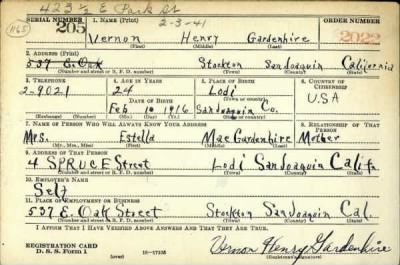 423 1/2 E Park St
2-3-41
SERIAL NUMBER 1. NAME (Print) ORDER NUMBER
205 Vernon Henry Gardenhire 2022
(First) (Middle) (Last)
1165
2. ADDRESS (Print)
537 E. Oak Stockton San Joaquin California
(Number and street or R. F. D. number) (Town) (County) (State)
3. TELEPHONE 4. AGE IN YEARS 5. PLACE OF BIRTH 6. COUNTRY OF CITIZENSHIP
2-9021 24 Lodi U.S.A
DATE OF BIRTH
Feb 10 1916 San Joaquin Co.
7. NAME OF PERSON WHO WILL ALWAYS KNOW YOUR ADDRESS 8. RELATIONSHIP OF THAT PERSON
Mrs. Estella Mae Gardenhire Mother
(Mr., Mrs., Miss) (First) (Middle) (Last)
9. ADDRESS OF THAT PERSON
4 SPRUCE Street Lodi San Joaquin Calif.
(Number and street or R. F. D. number) (Town) (County) (State)
10. EMPLOYER'S NAME
Self
11. PLACE OF EMPLOYMENT OR BUSINESS
537 E. Oak Street Stockton San Joaquin Cal.
(Number and street or R. F. D. number) (Town) (County) (State)
I AFFIRM THAT I HAVE VERIFIED ABOVE ANSWERS AND THAT THEY ARE TRUE.
REGISTRATION CARD
D. S. S. Form 1 (over) 16-17105 Vernon Henry Gardenhire
(Registrant's signature)